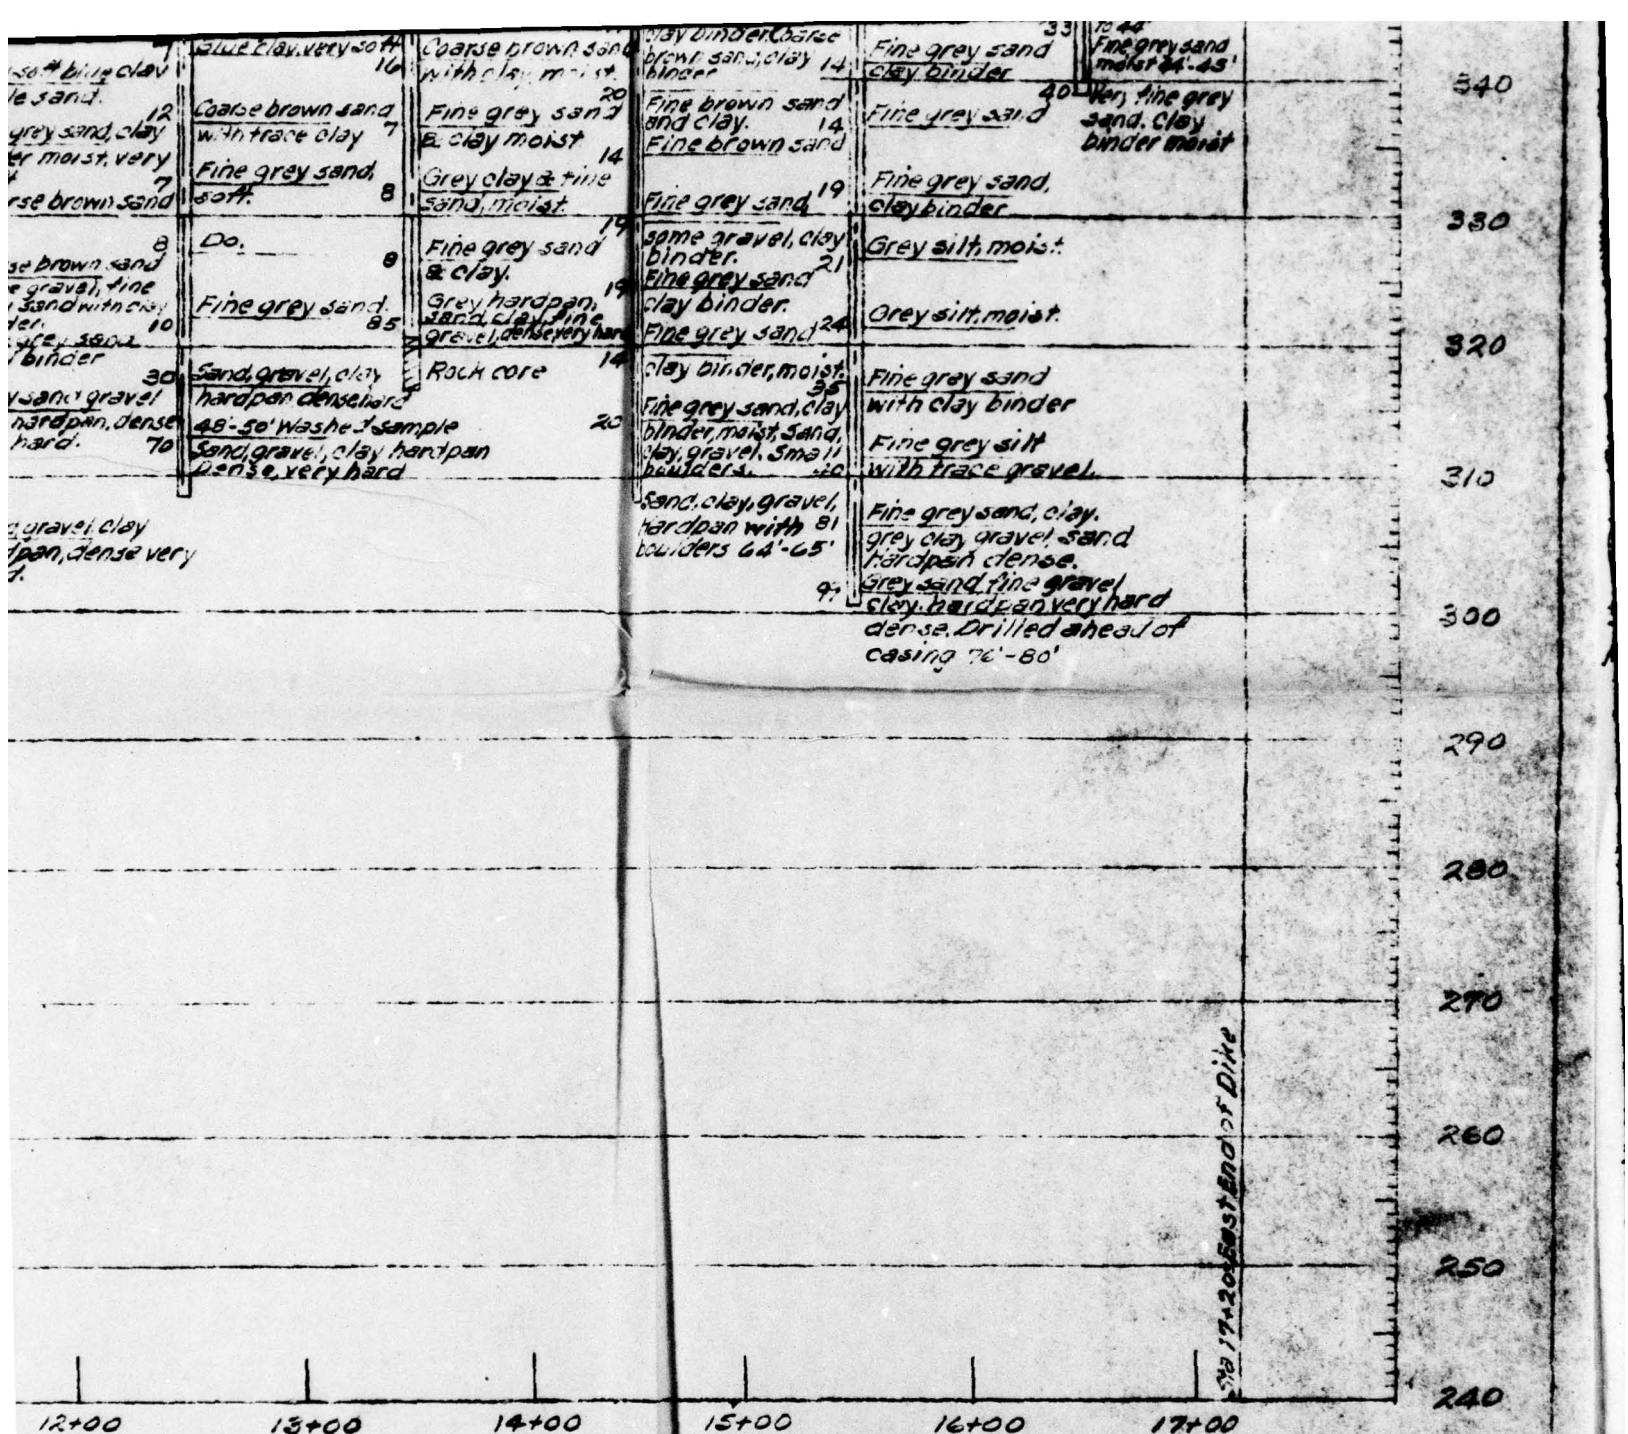 7
soft blue clay
le sand.
12
grey sand, clay
er moist, very
7
rse brown sand
8
se brown sand
e gravel, fine
sand with clay
der. 10
grey sand
binder
30
sand gravel
hardpan, dense
hard. 70
gravel, clay
dpan, dense very
d.
Blue clay, very soft
16
Coarse brown sand
with trace clay 7
Fine grey sand,
soft. 8
Do.
8
Fine grey sand.
85
Sand, gravel, clay
hardpan dense hard
48'-50' Washed sample
Sand, gravel, clay hardpan
Dense, very hard
Coarse brown sand
with clay, moist.
20
Fine grey sand
& clay moist
14
Grey clay & fine
sand, moist.
19
Fine grey sand
& clay.
19
Grey hardpan,
sand, clay, fine
gravel, dense, very hard
14
Rock core
20
clay binder. Coarse
brown sand, clay 14
binder
Fine brown sand
and clay. 14
Fine brown sand
19
Fine grey sand
some gravel, clay
binder. 21
Fine grey sand
clay binder.
Fine grey sand 24
clay binder, moist.
35
Fine grey sand, clay
binder, moist, sand,
clay, gravel, small
boulders. 40
Sand, clay, gravel,
hardpan with 81
boulders 64'-65'
33
Fine grey sand
clay binder
40
Fine grey sand
Fine grey sand,
clay binder
Grey silt, moist.
Grey silt, moist.
Fine gray sand
with clay binder
Fine grey silt
with trace gravel.
Fine grey sand, clay.
grey clay gravel, sand
hardpan dense.
Grey sand, fine gravel
clay, hardpan very hard
dense. Drilled ahead of
casing 76'-80'
to 44'
Fine grey sand
moist 44'-45'
Very fine grey
sand, clay
binder moist
340
330
320
310
300
290
280
270
260
250
240
Sta 17+20 East End of Dike
12+00 13+00 14+00 15+00 16+00 17+00